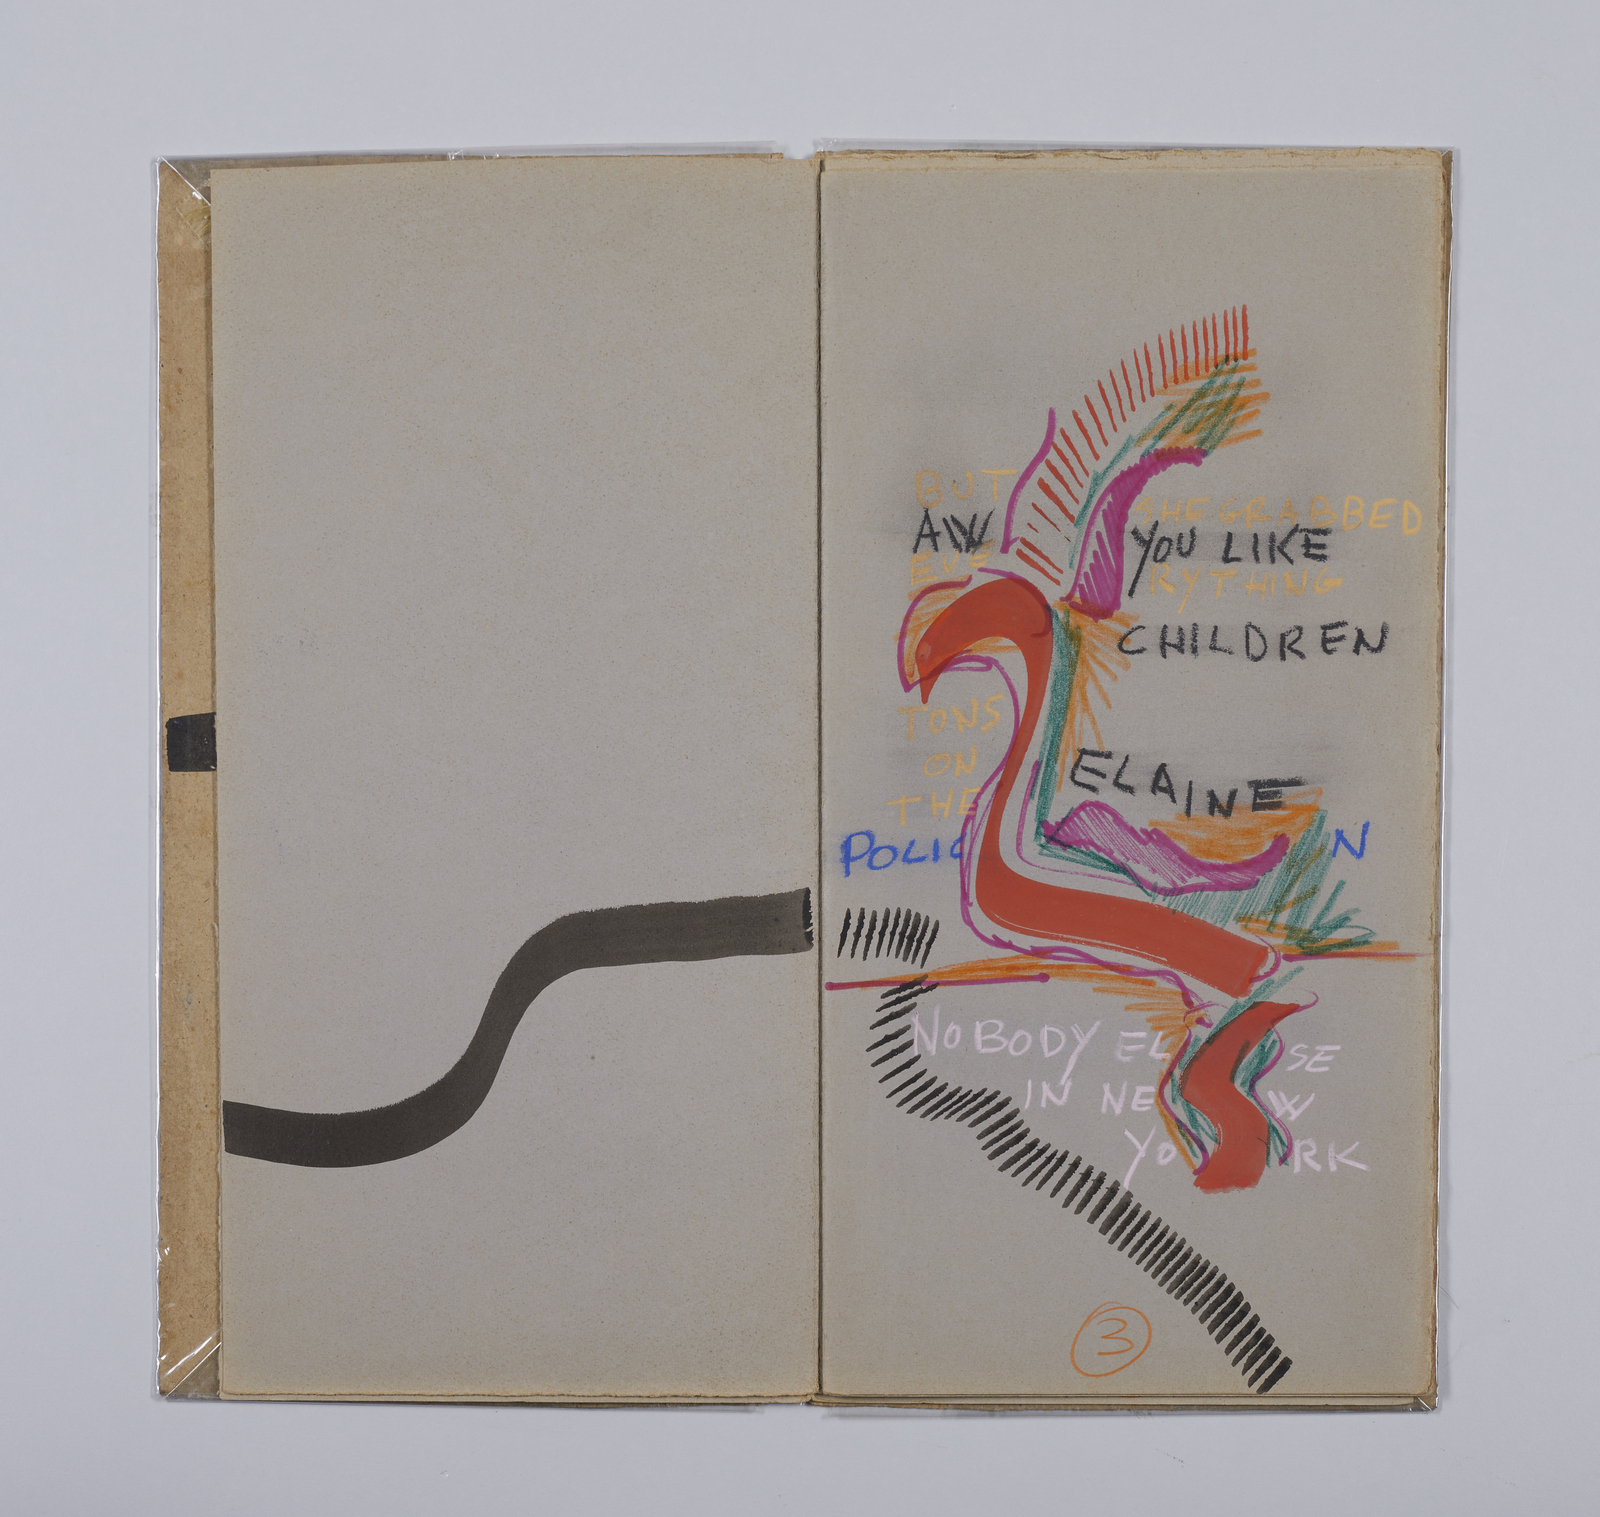 BUT SHE GRABBED
AW YOU LIKE
EVE RYTHING
CHILDREN
TONS
ON
THE
ELAINE
POLIC N
NOBODY EL SE
IN NE W
YO RK
3